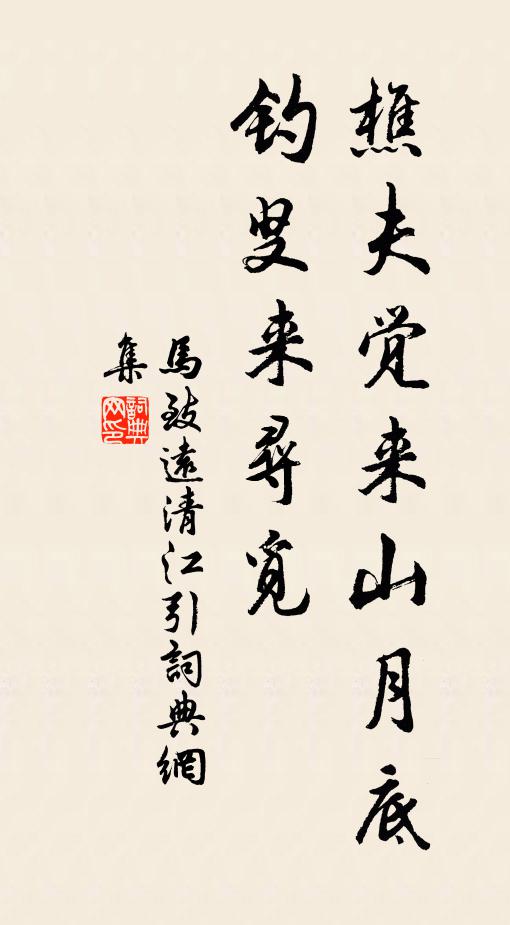 樵夫觉来山月底
钓叟来寻觅
馬致遠清江引詞典網
集
詞典网印